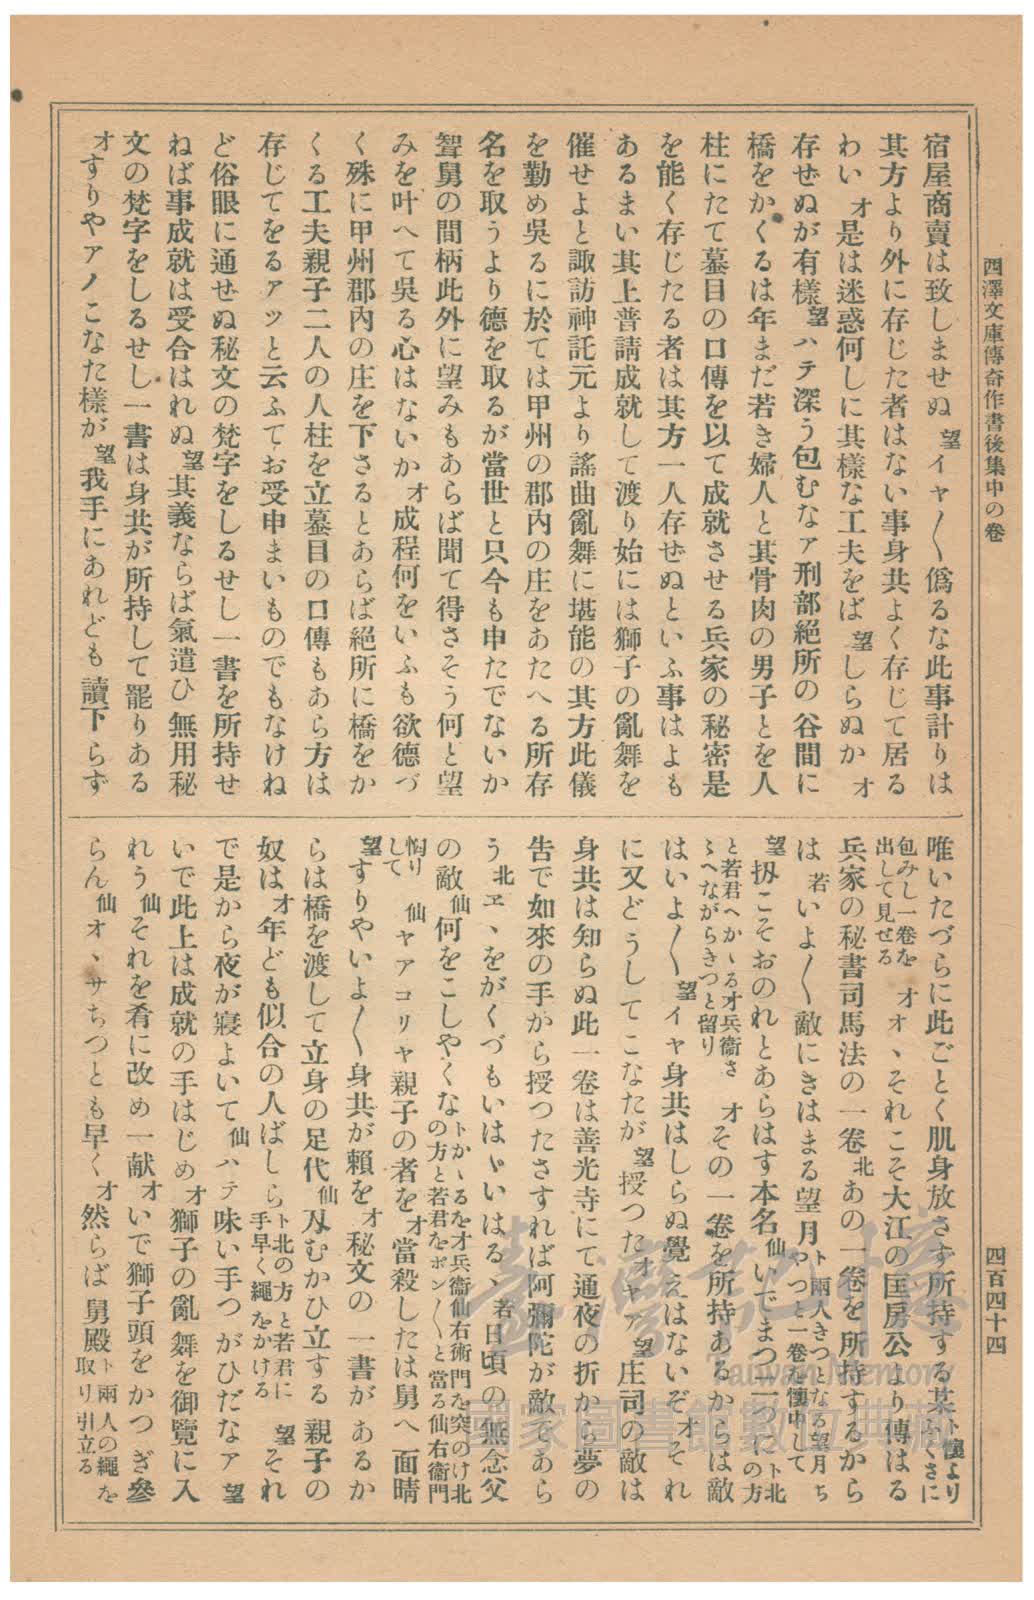 西澤文庫傳奇作書後集中の卷
四百四十四
宿屋商賣は致しませぬ 望 イヤ〱 僞るな此事計りは
其方より外に存じた者はない事身共よく存じて居る
わい オ 是は迷惑何しに其樣な工夫をば 望 しらぬか オ
存ぜぬが有樣 望 ハテ深う包むなァ刑部絶所の谷間に
橋をかくるは年まだ若き婦人と其骨肉の男子とを人
柱にたて墓目の口傳を以て成就させる兵家の秘密是
を能く存じたる者は其方一人存ぜぬといふ事はよも
あるまい其上普請成就して渡り始には獅子の亂舞を
催せよと諏訪神託元より謠曲亂舞に堪能の其方此儀
を勤め吳るに於ては甲州の郡內の庄をあたへる所存
名を取うより德を取るが當世と只今も申たでないか
聟舅の間柄此外に望みもあらば聞て得さそう何と望
みを叶へて吳る心はないか オ 成程何をいふも欲德づ
く殊に甲州郡內の庄を下さるとあらば絕所に橋をか
くる工夫親子二人の人柱を立墓目の口傳もあら方は
存じてをるァッと云ふてお受申まいものでもなけね
ど俗眼に通せぬ秘文の梵字をしるせし一書を所持せ
ねば事成就は受合はれぬ 望 其義ならば氣遣ひ無用秘
文の梵字をしるせし一書は身共が所持して罷りある
オ すりやアノこなた樣が 望 我手にあれども讀下らず
唯いたづらに此ごとく肌身放さす所持する某 ト懷より ふくさに
包みし一卷を 出して見せる オ オヽそれこそ大江の匡房公より傳はる
兵家の秘書司馬法の一卷 北 あの一卷を所持するから
は 若 いよ〱敵にきはまる望月 ト兩人きつとなる望月ち やつと一卷を懷中して
望 扨こそおのれとあらはす本名 仙 いでまつ二つに ト北の方
と若君へかゝるオ兵衞さ ゝへながらきつと留り オ その一卷を所持あるからは敵
はいよ〱 望 イヤ身共はしらぬ覺えはないぞ オ それ
に又どうしてこなたが 望 授つた オ ヤァ 望 庄司の敵は
身共は知らぬ此一卷は善光寺にて通夜の折から夢の
告で如來の手から授つたさすれば阿彌陀が敵であら
う 北 ヱヽをがくづもいはゞいはるゝ 若 日頃の無念父
の敵 仙 何をこしやくな トかゝるをオ兵衞仙右衞門を突のけ北 の方と若君をポン〱と當る仙右衞門
恟り して 仙 ヤアコリヤ親子の者を オ 當殺したは舅へ面晴
望 すりやいよ〱身共が賴を オ 秘文の一書があるか
らは橋を渡して立身の足代 仙 刄むかひ立する親子の
奴は オ 年ども似合の人ばしら ト北の方と若君に 手早く繩をかける 望 それ
で是から夜が寢よいて 仙 ハテ味い手つがひだなァ 望
いで此上は成就の手はじめ オ 獅子の亂舞を御覽に入
れう 仙 それを肴に改め一献 オ いで獅子頭をかつぎ參
らん 仙 オヽサちつとも早く オ 然らば舅殿 ト兩人の繩を 取り引立る
臺灣記憶
Taiwan Memory
國家圖書館數位典藏